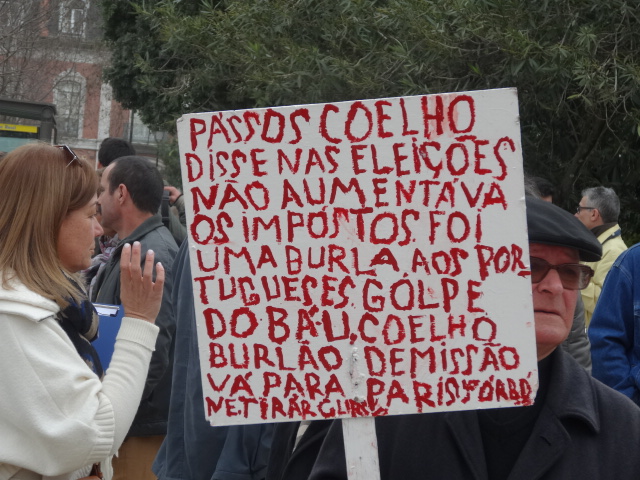 PÁSSOS COELHO
DISSE NAS ELEIÇÕES
NÃO AUMENTÁVA
OS IMPÓSTOS. FOI
UMA BURLA AOS POR
TUGUESES GÓLPE
DO BÁU. COELHO
BURLÃO DEMISSÃO
VÁ PARA PARÍS